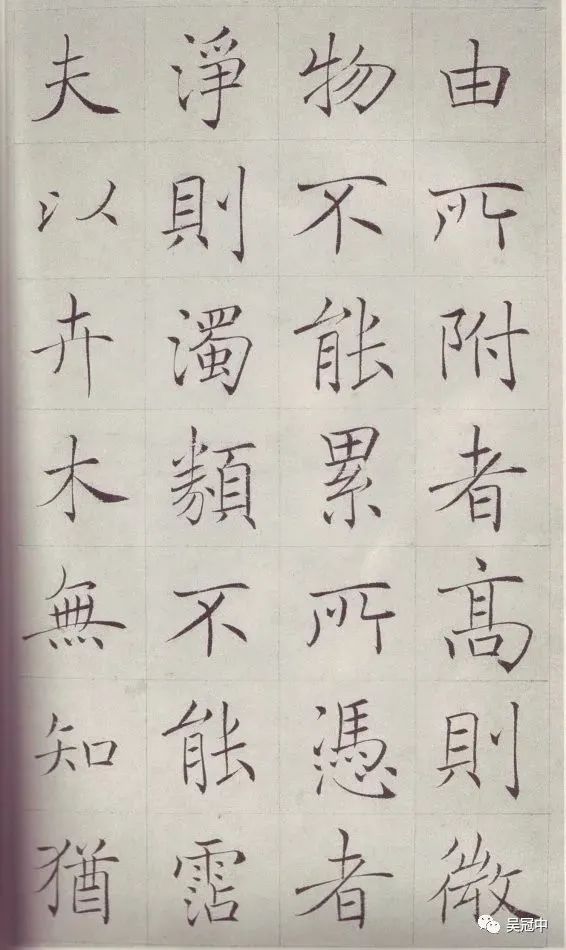 由所附者高則微
物不能累所憑者
淨則濁類不能霑
夫以卉木無知猶
吴冠中